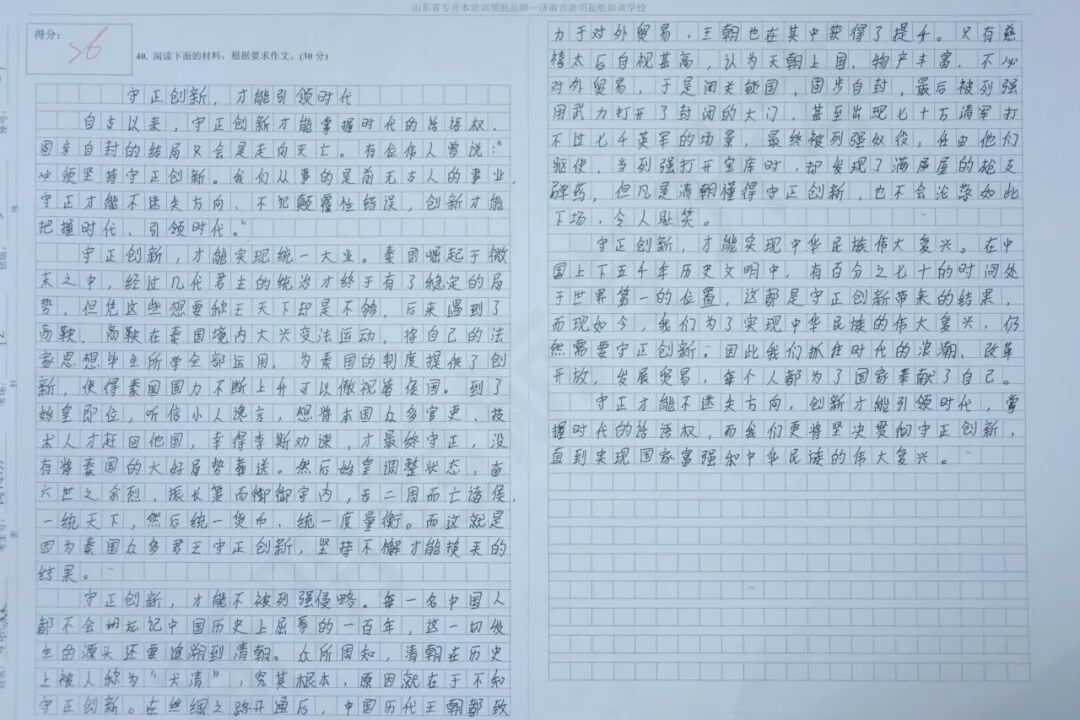 山东省专升本培训领航品牌—济南市路明起航培训学校
得分：
26
40. 阅读下面的材料，根据要求作文。(30 分)
守正创新，才能引领时代
自古以来，守正创新才能掌握时代的话语权，
固步自封的结局只会是走向灭亡。有位伟人曾说："
必须坚持守正创新。我们从事的是前无古人的事业，
守正才能不迷失方向、不犯颠覆性错误，创新才能
把握时代、引领时代。"
守正创新，才能实现统一大业。秦国崛起于微
末之中，经过几代君主的统治才终于有了稳定的局
势，但凭这些想要称王天下却是不够，后来遇到了
商鞅，商鞅在秦国境内大兴变法运动，将自己的法
家思想毕生所学全部运用，为秦国的制度提供了创
新，使得秦国国力不断上升可以傲视诸侯国。到了
始皇即位，听信小人谗言，想将本国众多官吏、技
术人才赶回他国，幸得李斯劝谏，才最终守正，没
有将秦国的大好局势葬送。然后始皇调整状态，奋
六世之余烈，振长策而御御宇内，吞二周而亡诸侯，
一统天下，然后统一货币，统一度量衡。而这就是
因为秦国众多君王守正创新，坚持不懈才能换来的
结果。
守正创新，才能不被列强侵略。每一名中国人
都不会忘记中国历史上屈辱的一百年，这一切发
生的源头还要追溯到清朝。众所周知，清朝在历史
上被人称为"大清"，究其根本，原因就在于不知
守正创新。在丝绸之路开通后，中国历代王朝都致
力于对外贸易，王朝也在其中获得了提升。只有慈
禧太后自视甚高，认为天朝上国，物产丰富，不必
对外贸易，于是闭关锁国，固步自封，最后被列强
用武力打开了封闭的大门，甚至出现七十万清军打
不过七千英军的场景，最终被列强奴役，任由他们
驱使，当列强打开宝库时，却发现了满屋屋的枪支
弹药，但凡是清朝懂得守正创新，也不会沦落如此
下场，令人耻笑。
守正创新，才能实现中华民族伟大复兴。在中
国上下五千年历史文明中，有百分之七十的时间处
于世界第一的位置，这都是守正创新带来的结果，
而现如今，我们为了实现中华民族的伟大复兴，仍
然需要守正创新。因此我们抓住时代的浪潮，改革
开放，发展贸易，每个人都为了国家奉献了自己。
守正才能不迷失方向，创新才能引领时代，掌
握时代的话语权，而我们更将坚决贯彻守正创新，
直到实现国家富强和中华民族的伟大复兴。